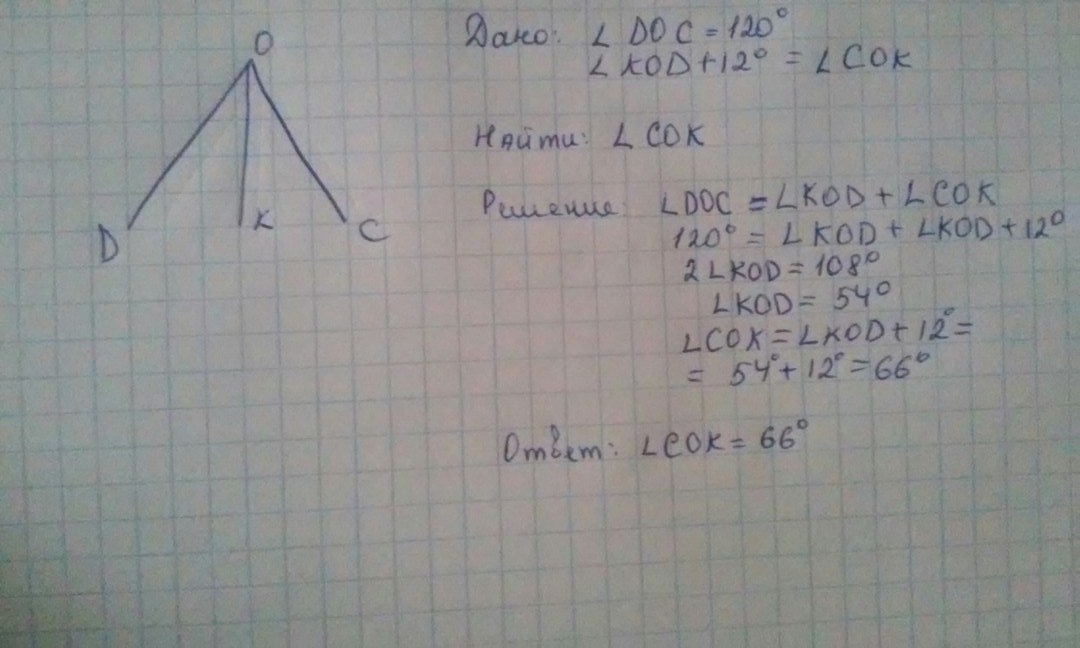 O
D
K
C
Дано: ∠DOC = 120°
∠KOD + 12° = ∠COK
Найти: ∠COK
Решение: ∠DOC = ∠KOD + ∠COK
120° = ∠KOD + ∠KOD + 12°
2∠KOD = 108°
∠KOD = 54°
∠COK = ∠KOD + 12° =
= 54° + 12° = 66°
Ответ: ∠COK = 66°